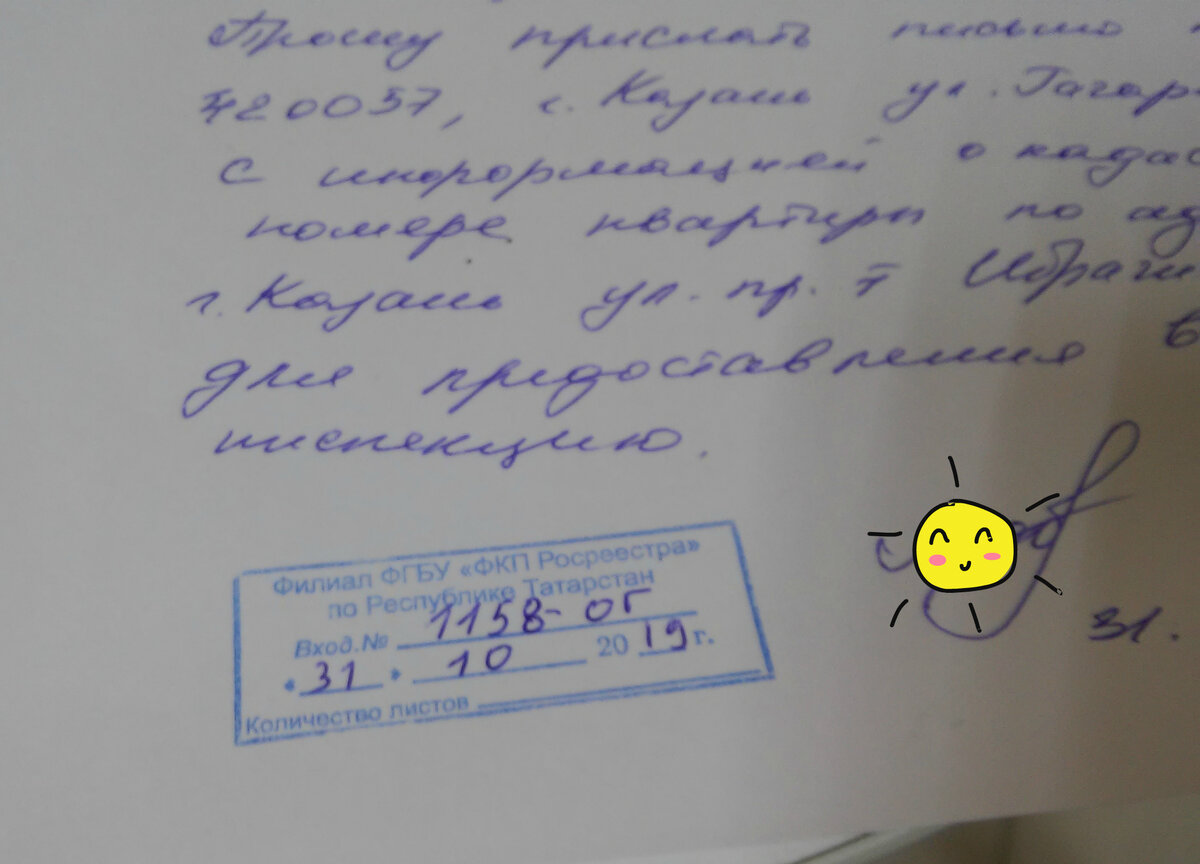 Прошу прислать письмо
420037, г. Казань ул. Гагар
с информацией о кадас
номере квартиры по ад
г. Казань ул. пр. т Ибраги
для предоставления в
инспекцию.
31.
Филиал ФГБУ «ФКП Росреестра»
по Республике Татарстан
Вход.№ 1158-ОГ
«31» 10 2019 г.
Количество листов